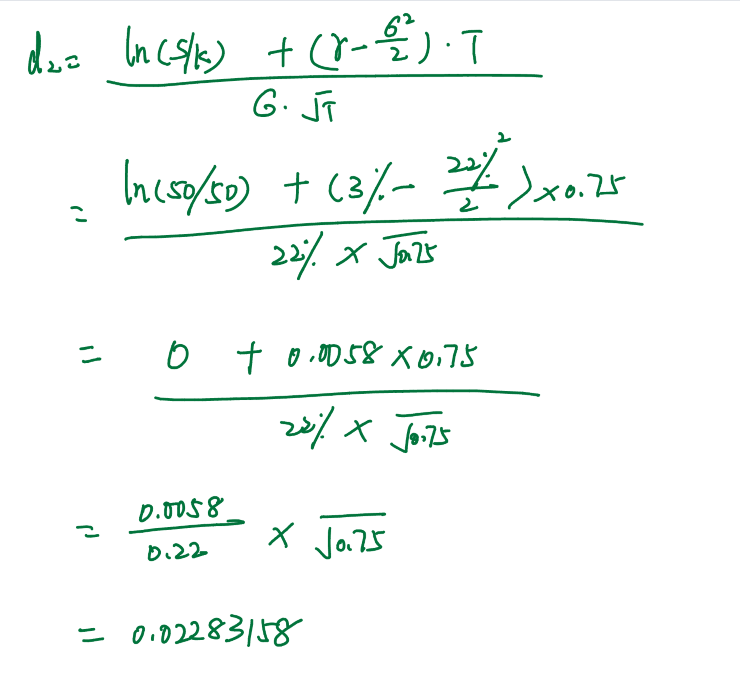 d₂ = (ln(S/K) + (r - σ²/2)·T) / (σ·√T)
= (ln(50/50) + (3% - 22%²/2) × 0.75) / (22% × √0.75)
= (0 + 0.0058 × 0.75) / (22% × √0.75)
= 0.0058/0.22 × √0.75
= 0.02283158